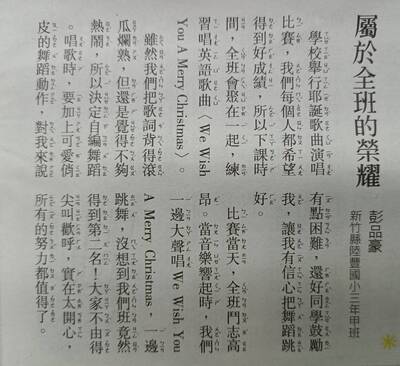 屬於全班的榮耀
彭品豪
新竹縣陸豐國小三年甲班
學校舉行耶誕歌曲演唱
比賽，我們每個人都希望
得到好成績，所以下課時
間，全班會聚在一起，練
習唱英語歌曲〈We Wish
You A Merry Christmas〉。
雖然我們把歌詞背得滾
瓜爛熟，但還是覺得不夠
熱鬧，所以決定自編舞蹈
。唱歌時，要加上可愛俏
皮的舞蹈動作，對我來說
有點困難，還好同學鼓勵
我，讓我有信心把舞蹈跳
好。
比賽當天，全班鬥志高
昂。當音樂響起時，我們
一邊大聲唱 We Wish You
A Merry Christmas，一邊
跳舞，沒想到我們班竟然
得到第二名！大家不由得
尖叫歡呼，實在太開心，
所有的努力都值得了。